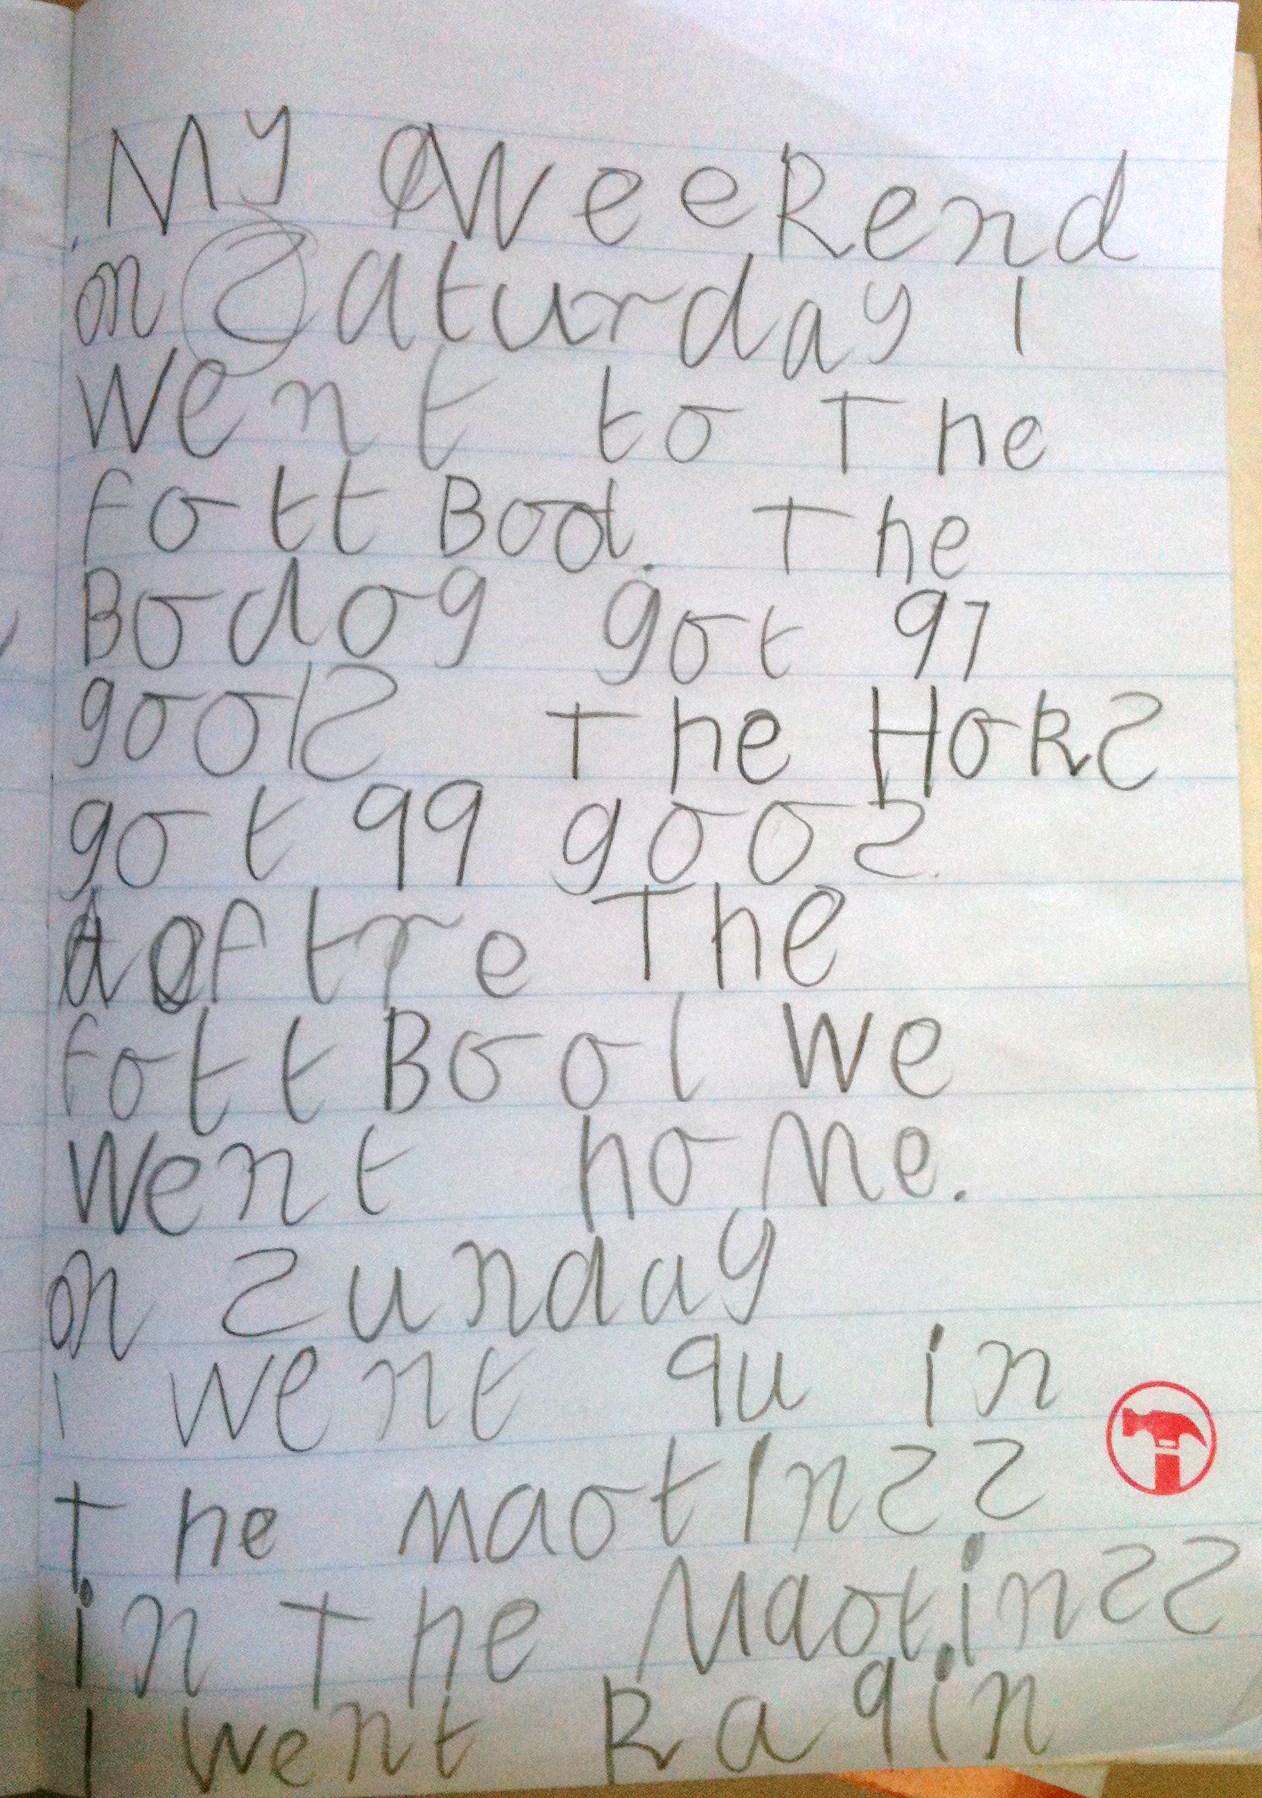 My WeeRend
on Saturday I
went to The
fottBool. The
Bodog got 91
gools The HoRs
got 99 goos
aoftre The
fottBool we
went hoMe.
on Sunday
i went qu in
The maotinss
in The Maotinss
I went Raqin